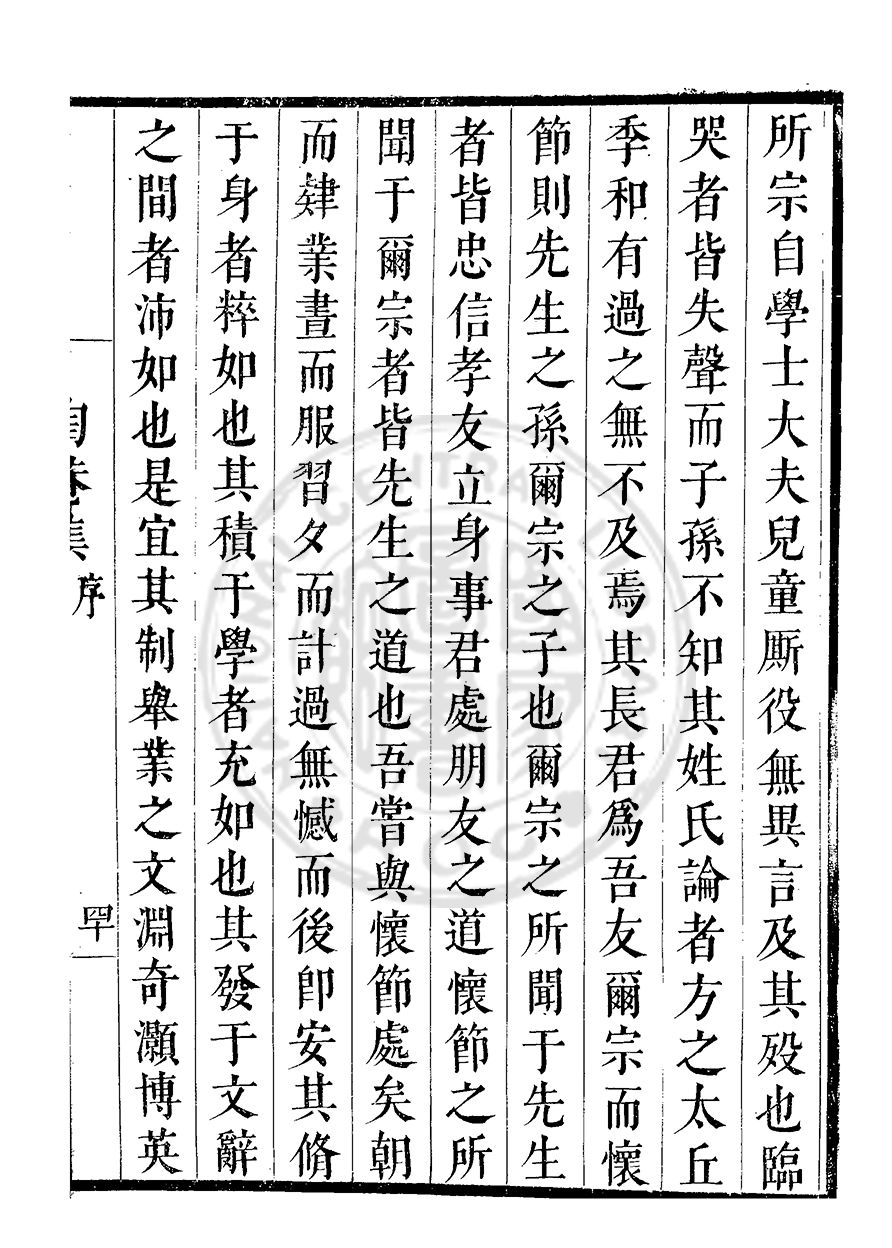 所宗自學士大夫兒童厮役無異言及其歿也臨
哭者皆失聲而子孫不知其姓氏論者方之太丘
季和有過之無不及焉其長君爲吾友爾宗而懷
節則先生之孫爾宗之子也爾宗之所聞于先生
者皆忠信孝友立身事君處朋友之道懷節之所
聞于爾宗者皆先生之道也吾嘗與懷節處矣朝
而肄業晝而服習夕而計過無憾而後卽安其脩
于身者粹如也其積于學者充如也其發于文辭
之間者沛如也是宜其制舉業之文淵奇灝博英
陶菴集 序